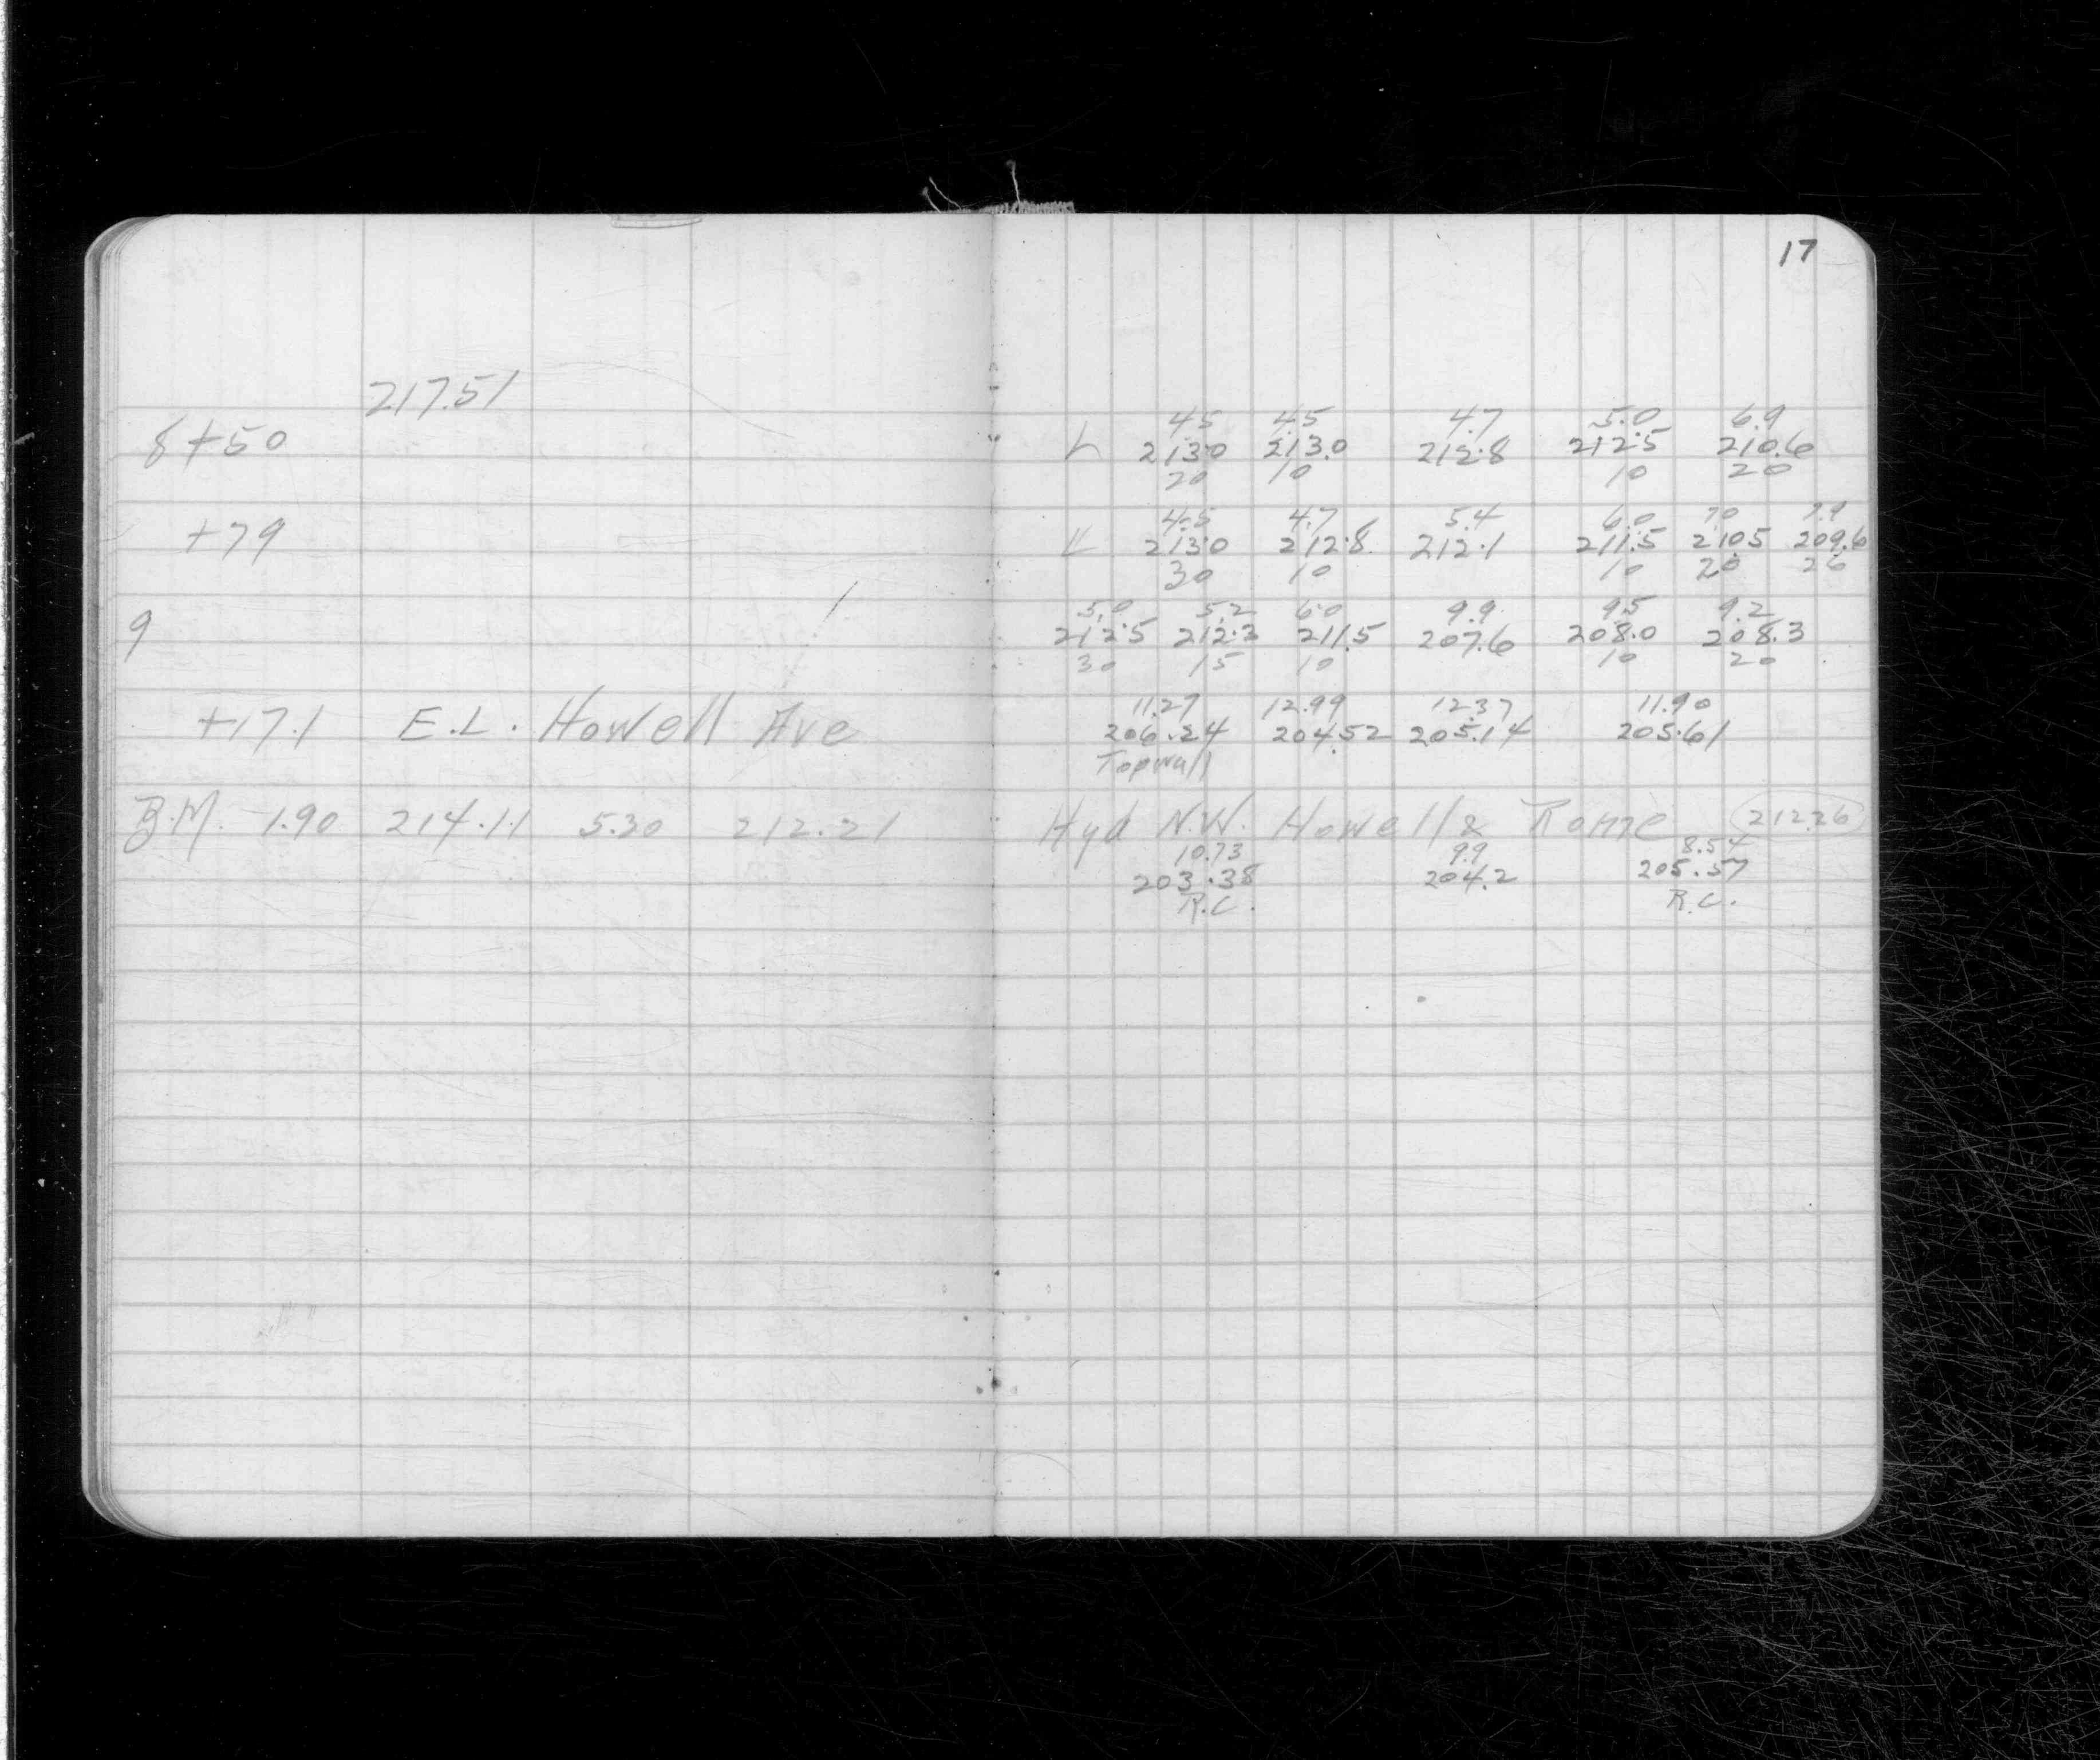 17
217.51
8+50
4.5 4.5 4.7 5.0 6.9
213.0 213.0 212.8 212.5 210.6
20 10 10 20
+79
4.5 4.7 5.4 6.0 7.0 7.9
213.0 212.8 212.1 211.5 210.5 209.6
30 10 10 20 26
9
5.0 5.2 6.0 9.9 9.5 9.2
212.5 212.3 211.5 207.6 208.0 208.3
30 15 10 10 20
+17.1 E.L. Howell Ave
11.27 12.99 12.37 11.90
206.24 204.52 205.14 205.61
Topwall
B.M. 1.90 214.11 5.30 212.21
Hyd N.W. Howell & Rome 212.26
10.73 9.9 8.54
203.38 204.2 205.57
R.C. R.C.